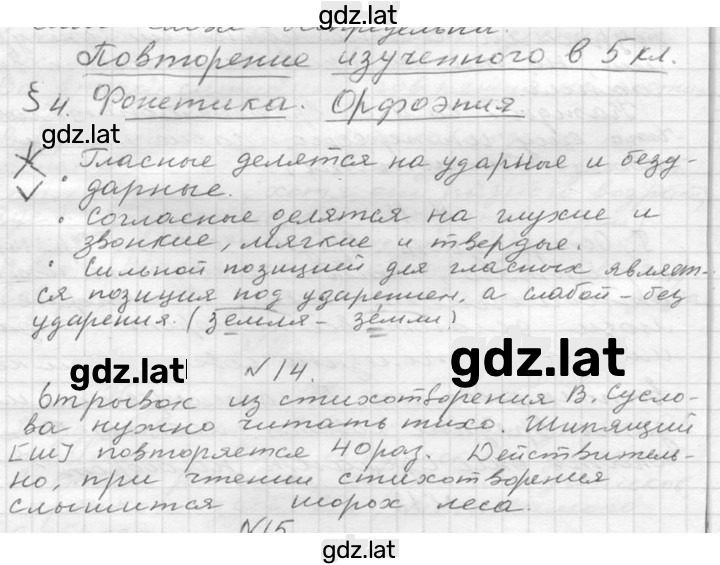 gdz.lat
Повторение изученного в 5 кл.
§ 4. Фонетика. Орфоэпия.
gdz.lat
• Гласные делятся на ударные и безу-
дарные.
• Согласные делятся на глухие и
звонкие, мягкие и твердые.
• Сильной позицией для гласных являет-
ся позиция под ударением, а слабой – без
ударения. (земля – зéмли)
gdz.lat
gdz.lat
№14.
Отрывок из стихотворения В. Сусло-
ва нужно читать тихо. Шипящий
[ш] повторяется 40раз. Действитель-
но, при чтении стихотворения
слышится шорох леса.
№15
gdz.lat